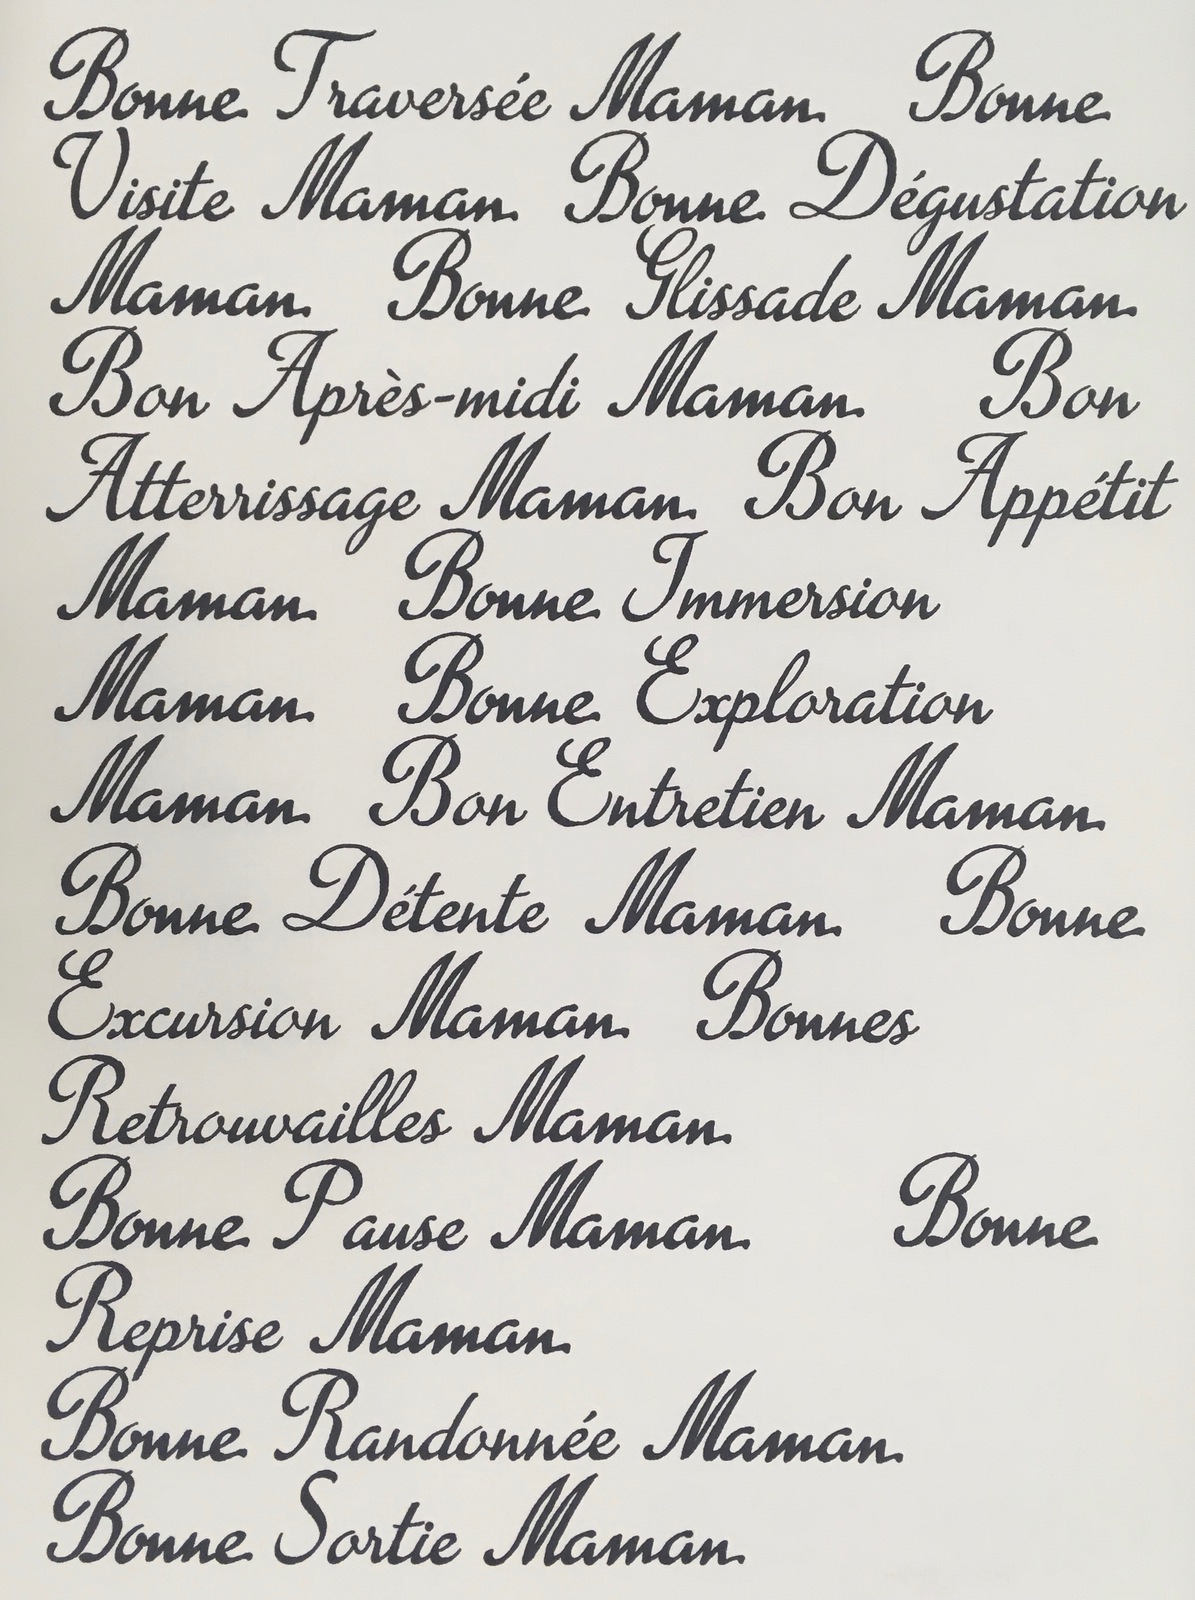 Bonne Traversée Maman. Bonne
Visite Maman. Bonne Dégustation
Maman. Bonne Glissade Maman.
Bon Après-midi Maman. Bon
Atterrissage Maman. Bon Appétit
Maman. Bonne Immersion
Maman. Bonne Exploration
Maman. Bon Entretien Maman.
Bonne Détente Maman. Bonne
Excursion Maman. Bonnes
Retrouvailles Maman.
Bonne Pause Maman. Bonne
Reprise Maman.
Bonne Randonnée Maman.
Bonne Sortie Maman.